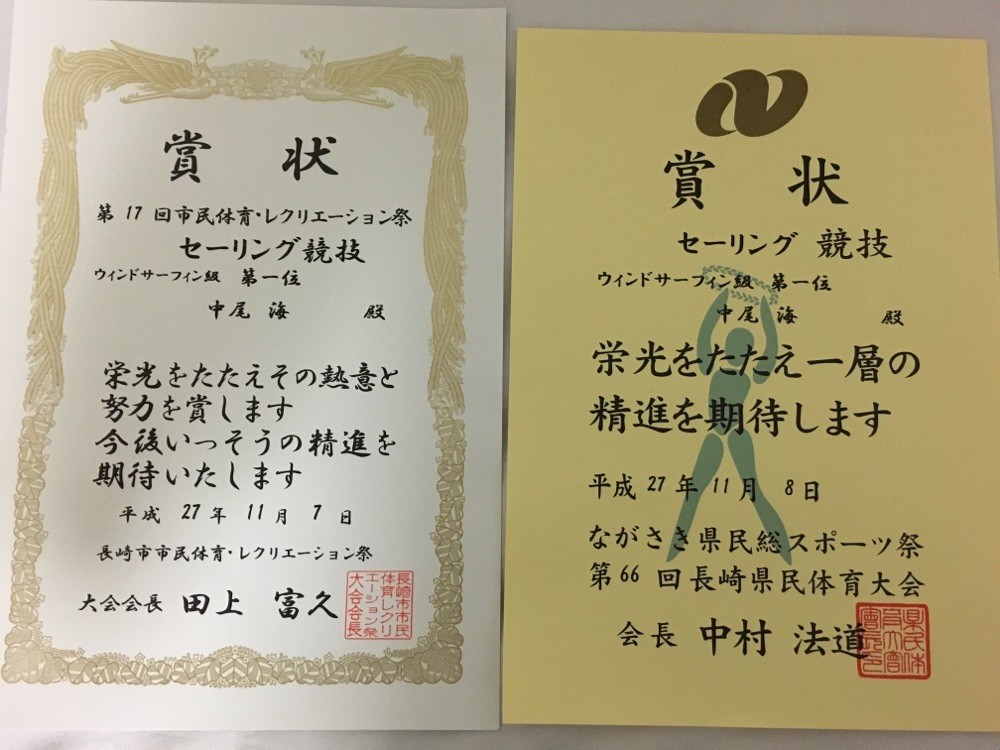 賞 状
第 17 回市民体育・レクリエーション祭
セーリング競技
ウィンドサーフィン級 第一位
中尾 海 殿
栄光をたたえその熱意と
努力を賞します
今後いっそうの精進を
期待いたします
平成 27 年 11 月 7 日
長崎市市民体育・レクリエーション祭
大会会長 田上 富久
長崎市市民
体育レクリ
エーション祭
大会会長
賞 状
セーリング 競技
ウィンドサーフィン級 第一位
中尾 海 殿
栄光をたたえ一層の
精進を期待します
平成 27 年 11 月 8 日
ながさき県民総スポーツ祭
第 66 回長崎県民体育大会
会長 中村 法道